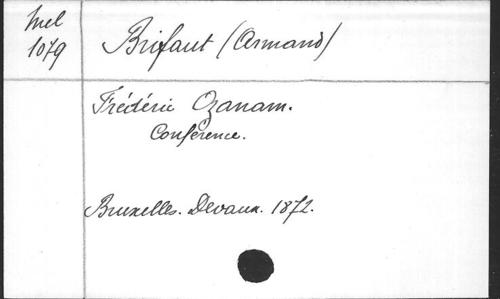 Mel
1079
Brifaut (Armand)
Frédéric Ozanam.
Conférence.
Bruxelles. Devaux. 1872.